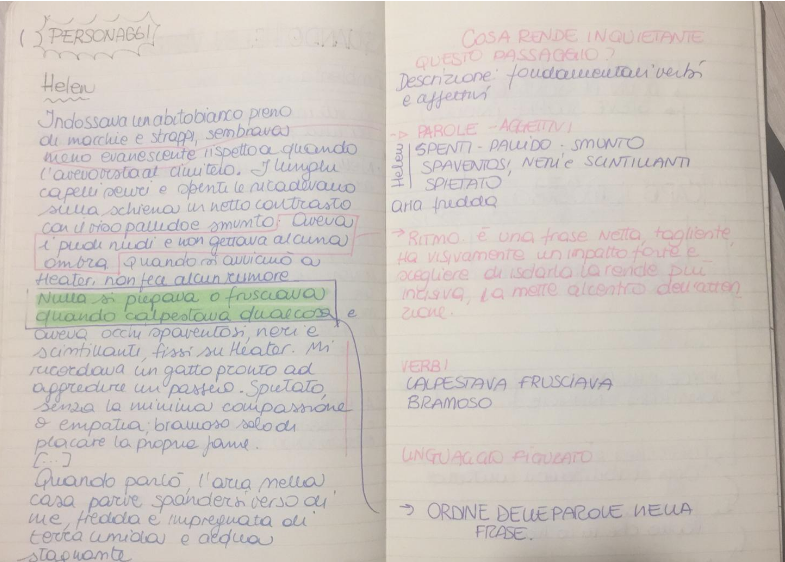 1) PERSONAGGI
Helen
Indossava un abito bianco pieno
di macchie e strappi, sembrava
meno evanescente rispetto a quando
l'avevo vista al cimitero. I lunghi
capelli scuri e spenti le ricadevano
sulla schiena in netto contrasto
con il viso pallido e smunto. Aveva
i piedi nudi e non gettava alcuna
ombra. Quando si avvicinò a
Heater, non fece alcun rumore
Nulla si piegava o frusciava
quando calpestava qualcosa e
aveva occhi spaventosi, neri e
scintillanti, fissi su Heater. Mi
ricordava un gatto pronto ad
aggredire un passero. Spietato,
senza la minima compassione
o empatia, bramoso solo di
placare la propria fame.
[...]
Quando parlò, l'aria nella
casa parve spandersi verso di
me, fredda e impregnata di
terra umida e acqua
stagnante
COSA RENDE INQUIETANTE
QUESTO PASSAGGIO?
Descrizione: fondamentali verbi
e aggettivi
-> PAROLE - AGGETTIVI
Helen
SPENTI - PALLIDO - SMUNTO
SPAVENTOSI, NERI e SCINTILLANTI
SPIETATO
aria fredda
→ RITMO: È una frase netta, tagliente
Ha visivamente un impatto forte e
scegliere di isolarla la rende più
incisiva, la mette al centro dell'atten
zione.
VERBI
CALPESTAVA FRUSCIAVA
BRAMOSO
LINGUAGGIO FIGURATO
→ ORDINE DELLE PAROLE NELLA
FRASE.